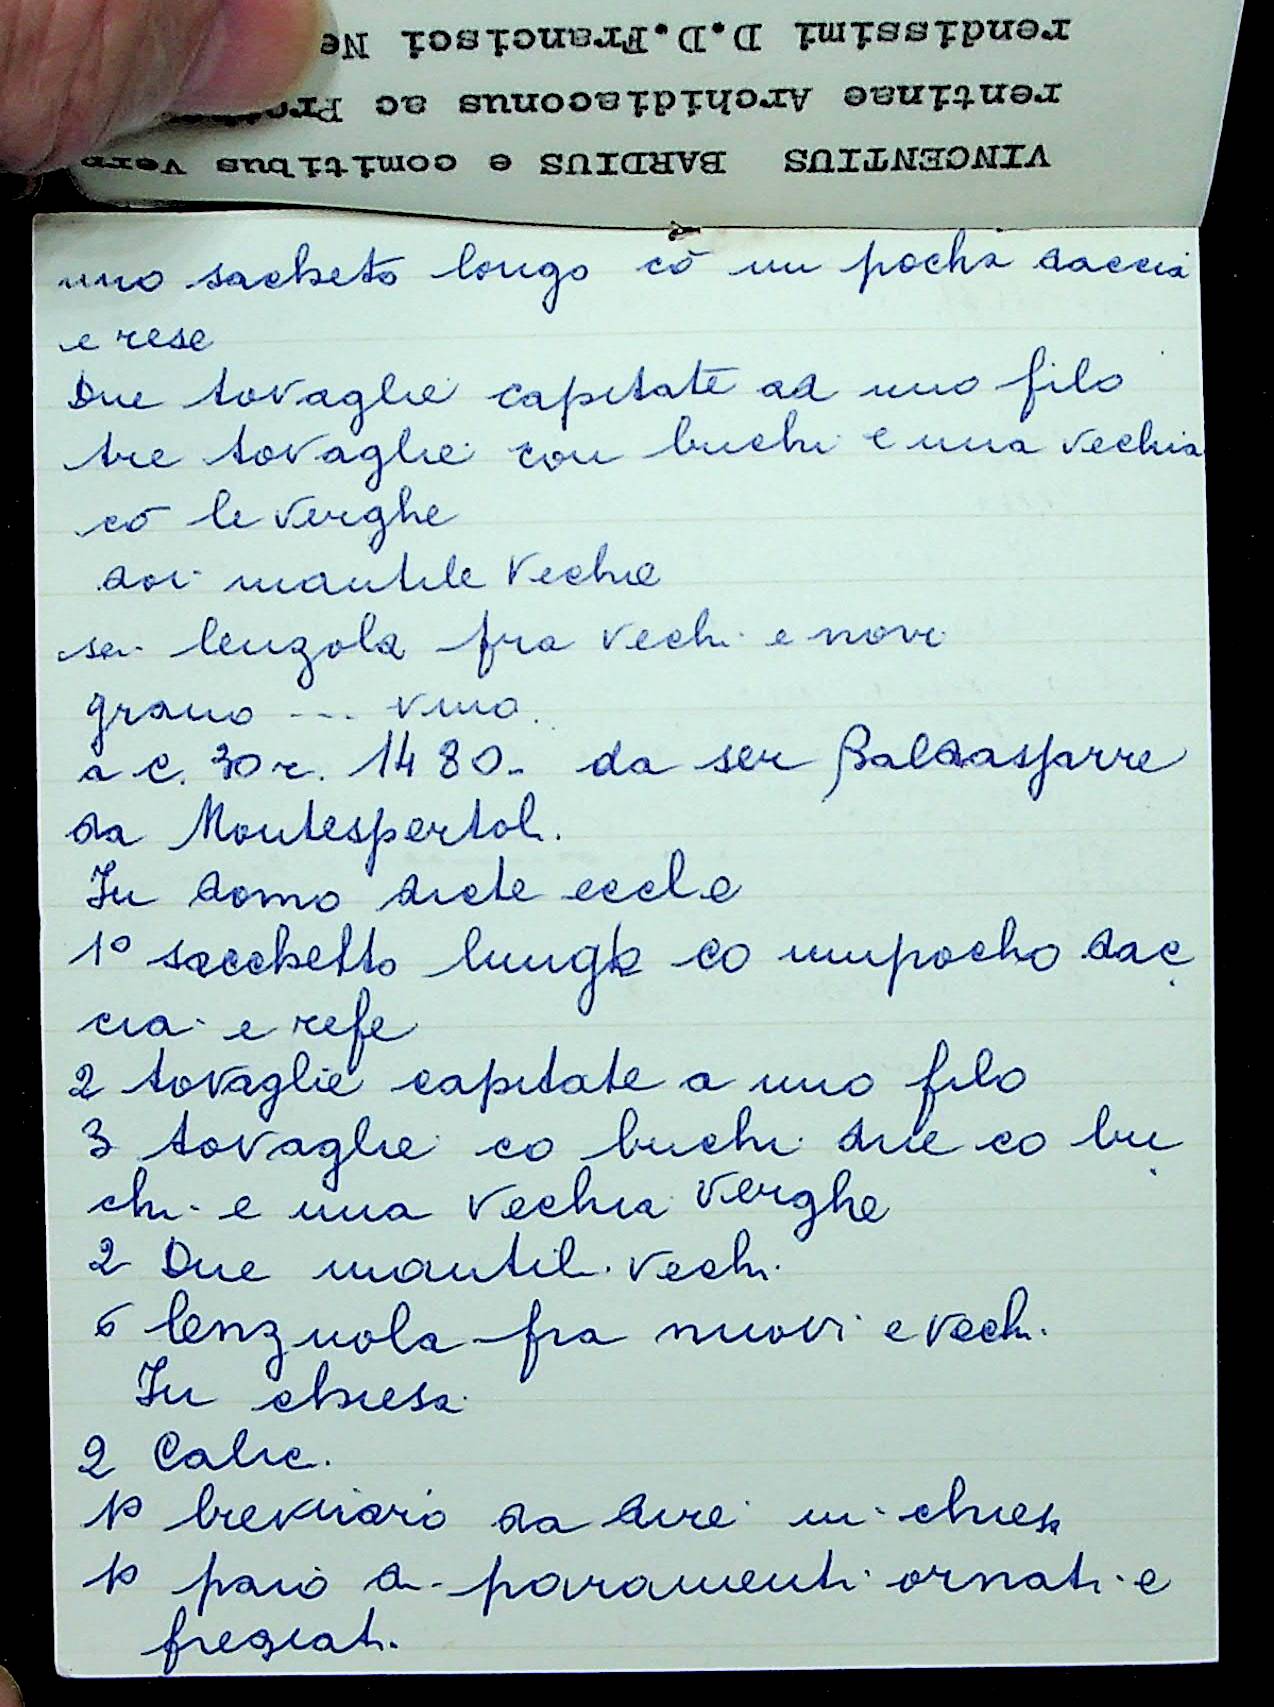 VINCENTIUS BARDIUS e comitibus Vern
rentinae Archidiaconus ac
rendissimi D.D.Francisci Ne
uno sacheto longo cō un pocha daccia
e rese
Due tovaglie capitate ad uno filo
tre tovaglie con buchi e una vechia
cō le verghe
doi mantile vechie
sei lenzola fra vechi e novi
grano --- vino.
a c. 30 r. 1480. da ser Baldasparre
da Montespertoli.
In domo dicte eccle
1º sacchetto lungo co unpocho dac
cia e refe
2 tovaglie capitate a uno filo
3 tovaglie co buchi due co bu
chi e una vechia verghe
2 Due mantili vechi
6 lenzuola fra nuovi e vech.
In chiesa
2 Calici.
1º breviario da dire in chiesa
1º paio di paramenti ornati e
fregiati.